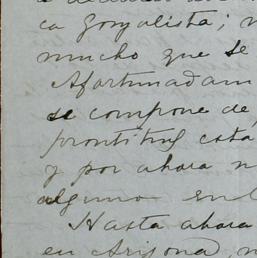 ca Gonzalista;
mucho que se
Afortunadam
se compone de
prontitud esta
y por ahora n
alguno en l
Hasta ahora
en Arizona, n